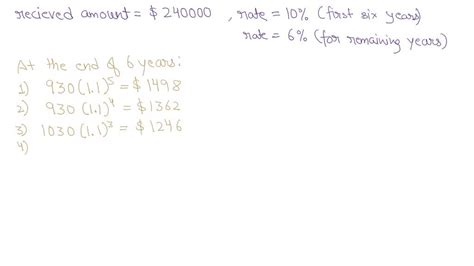 recieved amount = $ 240000 , rate = 10% (first six years)
rate = 6% (for remaining years)
At the end of 6 years:
1) 930 (1.1)^5 = $ 1498
2) 930 (1.1)^4 = $ 1362
3) 1030 (1.1)^3 = $ 1246
4)